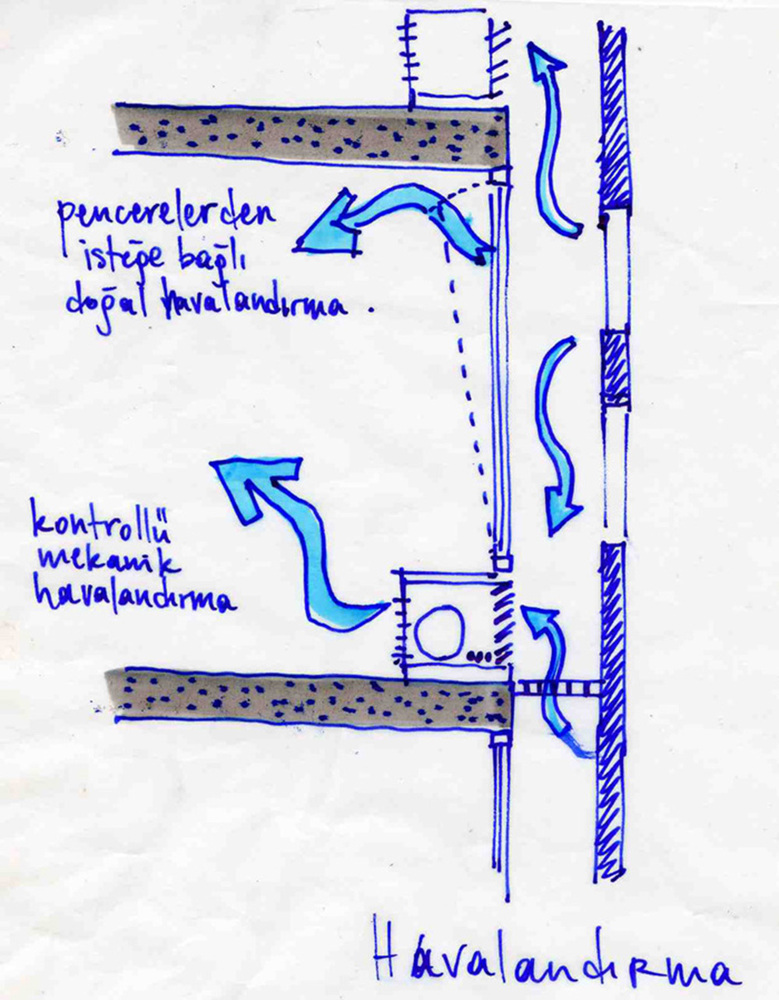 pencerelerden
isteğe bağlı
doğal havalandırma.
kontrollü
mekanik
havalandırma
Havalandırma